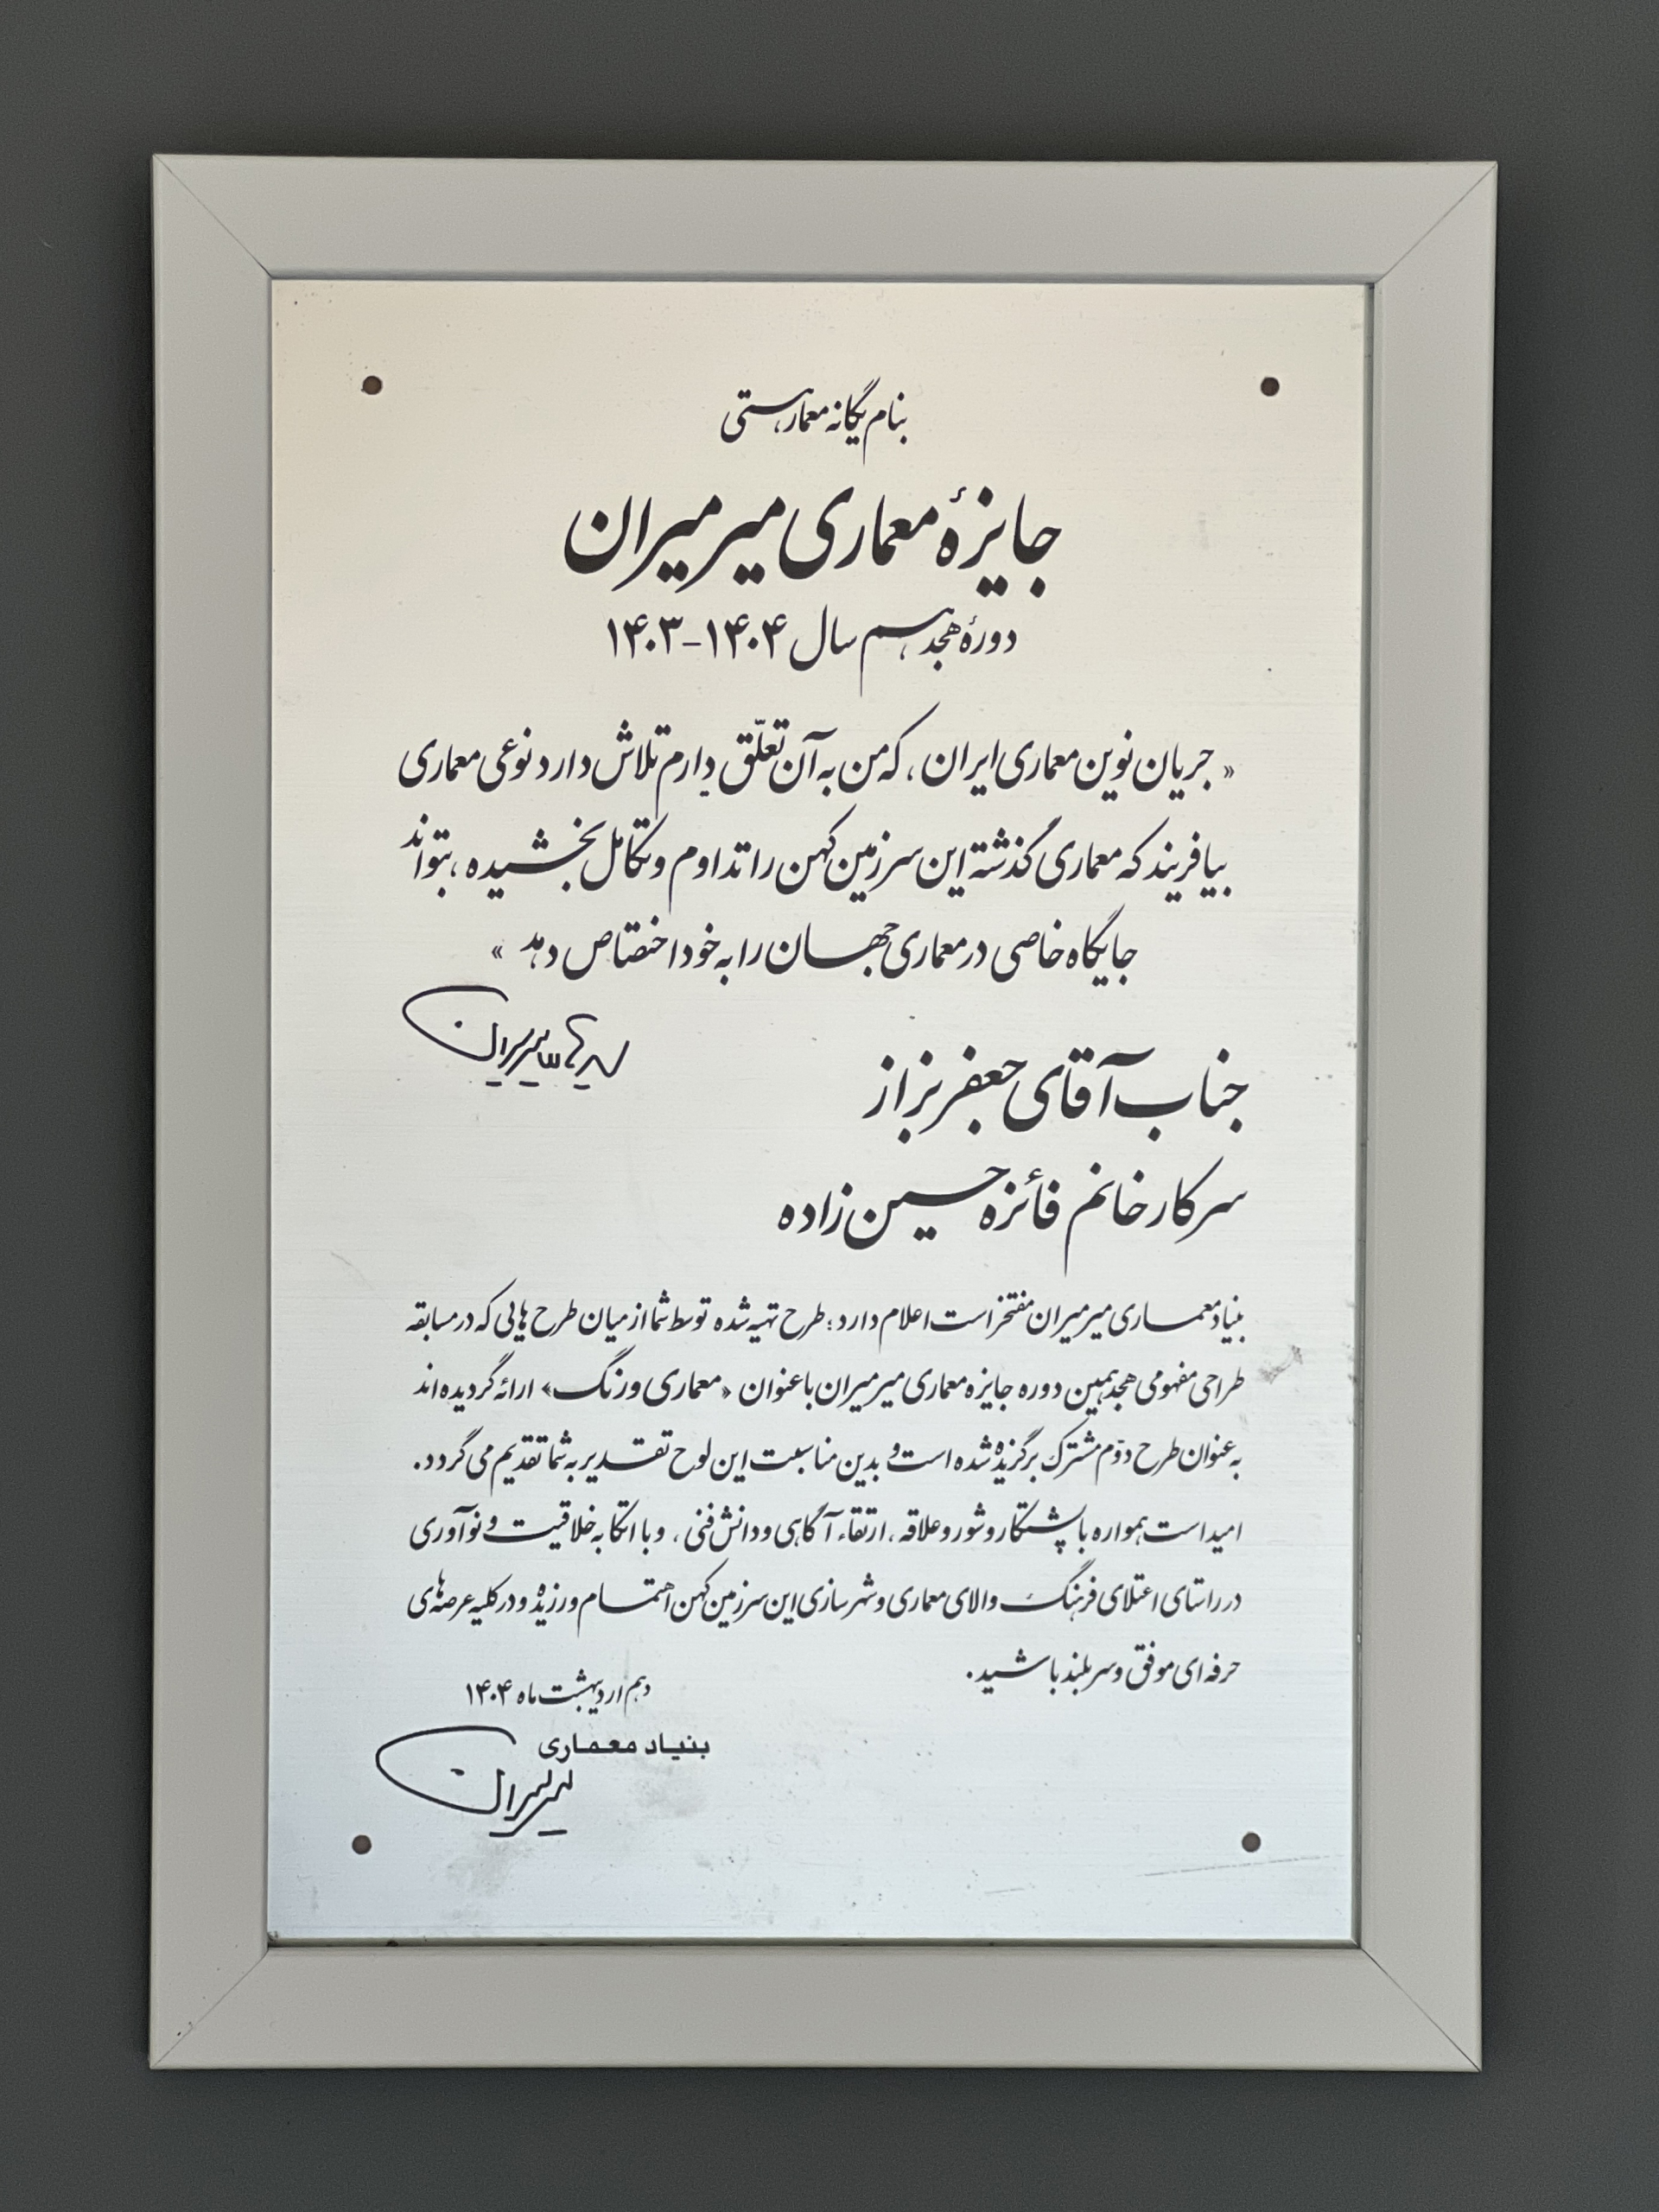 بنام یگانه معمار هستی
جایزهٔ معماری میرمیران
دورهٔ هجدهم سال ۱۴۰۴-۱۴۰۳
« جریان نوین معماری ایران ، که من به آن تعلّق دارم تلاش دارد نوعی معماری
بیافریند که معماری گذشته این سرزمین کهن را تداوم و تکامل بخشیده ، بتواند
جایگاه خاصی در معماری جهان را به خود اختصاص دهد »
جناب آقای جعفر بزاز
سرکار خانم فائزه حسین زاده
بنیاد معماری میرمیران مفتخر است اعلام دارد ؛ طرح تهیه شده توسط شما از میان طرح هایی که در مسابقه
طراحی مفهومی هجدهمین دوره جایزه معماری میرمیران با عنوان «معماری و رنگ» ارائه گردیده اند
به عنوان طرح دوّم مشترک برگزیده شده است و بدین مناسبت این لوح تقدیر به شما تقدیم می گردد.
امید است همواره با پشتکار و شور و علاقه ، ارتقاء آگاهی و دانش فنی ، و با اتکا به خلاقیت و نوآوری
در راستای اعتلای فرهنگ والای معماری و شهرسازی این سرزمین کهن اهتمام ورزیده و در کلیه عرصه های
حرفه ای موفق و سربلند باشید.
دهم اردیبهشت ماه ۱۴۰۴
بنیاد معماری
میرمیران